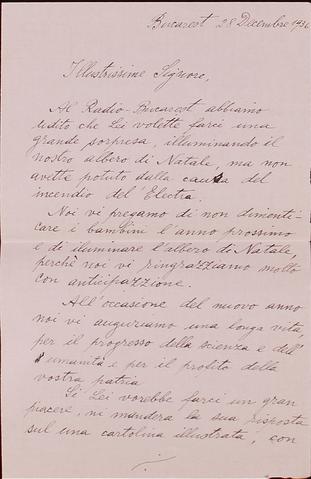 Bucarest 28 Decembre 1936
Illustrissime Signore,
Al Radio-Bucarest abbiamo
udito che Lei volette farci una
grande sorpresa, illuminando il
nostro albero di Natale, ma non
avette potuto dalla causa del
incendio del' Electra.
Noi vi pregamo di non dimenti-
care i bambini l'anno prossimo
e di iluminare l'albero di Natale,
perchè noi vi ringrazziamo molto
con anticipazzione.
All'occasione del nuovo anno
noi vi auguriamo una longa vita,
per il progresso della scienza e dell'
umanità e per il profito della
vostra patria
Si Lei vorebbe farci un gran
piacere, ni mandera la sua risposta
sul una cartolina illustrata, con